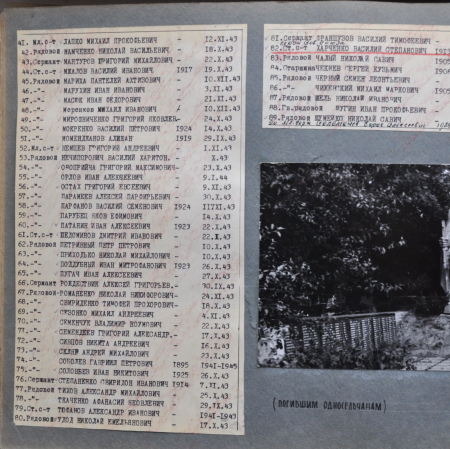 41. Мл.с-т - ЛАПКО МИХАИЛ ПРОКОФЬЕВИЧ - 12.XI.43
42. Рядовой НАМЧЕНКО НИКОЛАЙ ВАСИЛЬЕВИЧ - 18.X.43
43. Сержант-МАНТУРОВ ГРИГОРИЙ МИХАЙЛОВИЧ - 22.X.43
44. Ст. с-т - МХАЛОВ ИВАН ИВАНОВИЧ 1917 19.X.43
45. Рядовой МАРИХА ПАНТЕЛЕЙ АНТИЗОВИЧ - 10.XII.43
46. -"- МАРУХИН ИВАН ИВАНОВИЧ - 3.XI.43
47. -"- МАСЮК ИВАН ФЕДОРОВИЧ - 21.XI.43
48. -"- МИХАИЛ ИВАНОВИЧ 10.XII.43
49. -"- МИРОШНИЧЕНКО ГРИГОРИЙ ЯКОВЛЕВ.- 24.X.43
50. -"- МОКРЕНКО ВАСИЛИЙ ПЕТРОВИЧ 1924 14.X.43
51. -"- АЛИМАН 1919 29.IX.43
52. Мл.с-т - НЕМЦЕВ ГРИГОРИЙ АНДРЕЕВИЧ - I.XI.43
53. Рядовой НЕЧИПОРОВИЧ ВАСИЛИЙ ХАРИТОН. - X.43
54. -"- ГРИГОРИЙ МАКСИМОВИЧ- 23.X.43
55. -"- ОРЛОВ ИВАН АЛЕКСЕЕВИЧ - 9.I.44
56. -"- ОСТАХ ГРИГОРИЙ ЕВСЕЕВИЧ - 9.XI.43
57. -"- ПАРАМЕЕВ АЛЕКСЕЙ ПАРФИРЬЕВИЧ - 30.X.43
58. -"- ПАРАНОВ ВАСИЛИЙ СЕМЕНОВИЧ 1924 11/XI.43
59. -"- ПАРУБЕЦ ЯКОВ ЕФИМОВИЧ - 14.X.43
60. -"- ПАТАНИН ИВАН АЛЕКСЕЕВИЧ 1923 22.X.43
61. Ст.с-т - ПЕЛОМИНОВ ДМИТРИЙ ИВАНОВИЧ - 22.X.43
62. Рядовой ПЕТРИВНЫЙ ПЕТР ПЕТРОВИЧ - 10.X.43
63. -"- ПРИХОДЬКО МИХАИЛ МИХАЙЛОВИЧ - 10.X.43
64. -"- ПОДДУБНЫЙ ИВАН МИТРОФАНОВИЧ 1923 26.X.43
65. -"- ПУГАЧ ИВАН АЛЕКСЕЕВИЧ - 27.X.43
66. Сержант РОЖДЕСТВИН АЛЕКСЕЙ ГРИГОРЬЕВ.- 30.IX.43
67. Рядовой РОМАНЕНКО НИКОЛАЙ НИКИФОРОВИЧ - 24.XI.43
68. -"- СВИРИДЕНКО ТИМОФЕЙ ПРОХОРОВИЧ - 18.X.43
69. -"- СЕЗОНКО МИХАИЛ АНДРЕЕВИЧ - 4.XI.43
70. -"- СЕМЕНЧУК ВЛАДИМИР НОУМОВИЧ - 22.X.43
71. -"- СЕМЕНДЯЕВ ГРИГОРИЙ АЛЕКСАНДР. - 17.X.43
72. -"- СИНЦОВ НИКИТА АНДРЕЕВИЧ - 16.X.43
73. -"- АНДРЕЙ МИХАЙЛОВИЧ - 23.X.43
74. -"- СОБОЛЕВ ГАВРИИЛ ПЕТРОВИЧ 1895 1941-1945
75. -"- СОЛОВЬЕВ ИВАН НИКИТОВИЧ 1925 26.X.43
76. Сержант-СТЕПАНЕНКО СВИРИДОН ИВАНОВИЧ 1914 7.VI.43
77. Рядовой ТИХОВ АЛЕКСАНДР МИХАЙЛОВИЧ - 25.X.43
78. -"- ТКАЧЕНКО АФАНАСИЙ ЯКОВЛЕВИЧ - 29.IX.43
79. Ст.с-т - ТЮФАНОВ АЛЕКСАНДР ИВАНОВИЧ - 1941-1943
80. Рядовой НИКОЛАЙ ЕМЕЛЬЯНОВИЧ - 17.X.43
81. Сержант ФРАНЦУЗОВ ВАСИЛИЙ ТИМОФЕЕВИЧ -
82. Ст.с-т - ХАРЧЕНКО ВАСИЛИЙ СТЕПАНОВИЧ 1913
83. Рядовой ЧАЛЫЙ НИКОЛАЙ САВИЧ 1905
84. СЕРГЕЙ КУЗЬМИЧ 1904
85. Рядовой ЧЕРНЫЙ СЕМЕН ЛЕОНТЬЕВИЧ -
86. -"- МИХАИЛ МАРКОВИЧ 1905
87. Рядовой ШМЕЛЬ НИКОЛАЙ ИВАНОВИЧ -
88. Гв.рядовой ИВАН ПРОКОФЬЕВИЧ -
89. Рядовой ШУМЕЙКО НИКОЛАЙ САВИЧ -
(ПОГИБШИМ ОДНОСЕЛЬЧАНАМ)